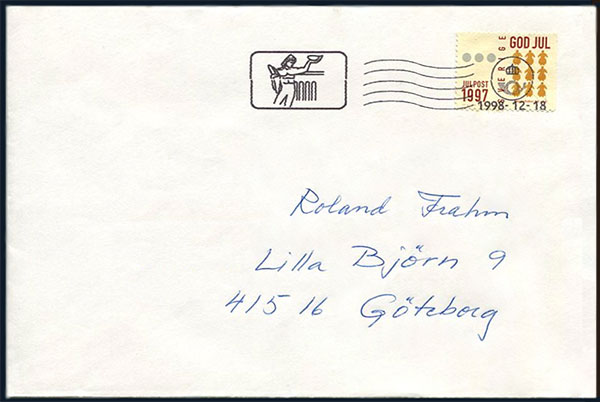 GOD JUL
SVERIGE
JULPOST
1997
1998-12-18
Roland Frahm
Lilla Björn 9
415 16 Göteborg